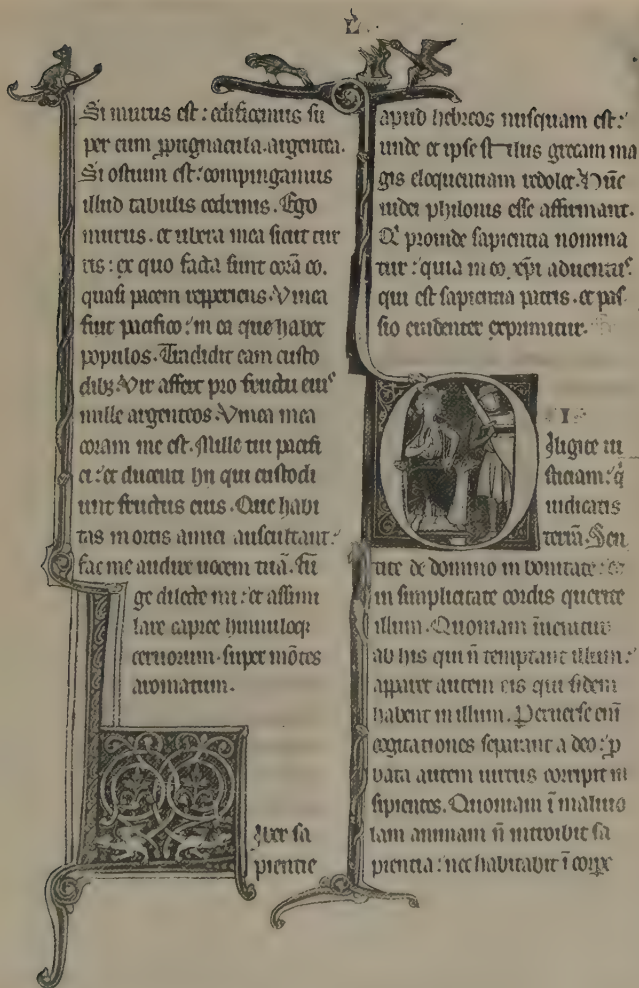 L
Si murus est: edificemus su
per eum ꝓpugnacula argentea.
Si ostium est: compingamus
illud tabulis cedrinis. Ego
murus. et ubera mea sicut tur
ris: ex quo facta sum corā eo.
quasi pacem repperiens. Vinea
fuit pacifico: in ea que habet
populos. Tradidit eam custo
dibꝫ. Vir affert pro fructu eiꝰ
mille argenteos. Vinea mea
coram me est. Mille tui pacifi
ci: et ducenti hiis qui custodi
unt fructus eius. Que habi
tas in ortis amici auscultant:
fac me audire uocem tuā. Fu
ge dilecte mi: et assimi
lare capree hinnuloqꝫ
ceruorum. super mōtes
aromatum.
Liber sa
pientie
apud hebreos nusquam est:
unde et ipse stilus grecam ma
gis eloquentiam redolet. Hūc
iudei philonis esse affirmant.
Qͥ proinde sapientia nomina
tur: quia in eo. xp̄i aduentꝰ.
qui est sapientia patris. et pas
sio euidenter exprimitur.
I
Diligite iu
sticiam: q̇
iudicatis
terrā. Sen
tite de domino in bonitate: et
in simplicitate cordis querite
illum. Quoniam īuenitur
ab his qui n̄ temptant illum:
apparet autem eis qui fidem
habent in illum. Peruerse eni
cogitationes separant a deo: ꝓ
bata autem uirtus corripit in
sipientes. Quoniam ī maliuo
lam animam n̄ introibit sa
pientia: nec habitabit ī corpe